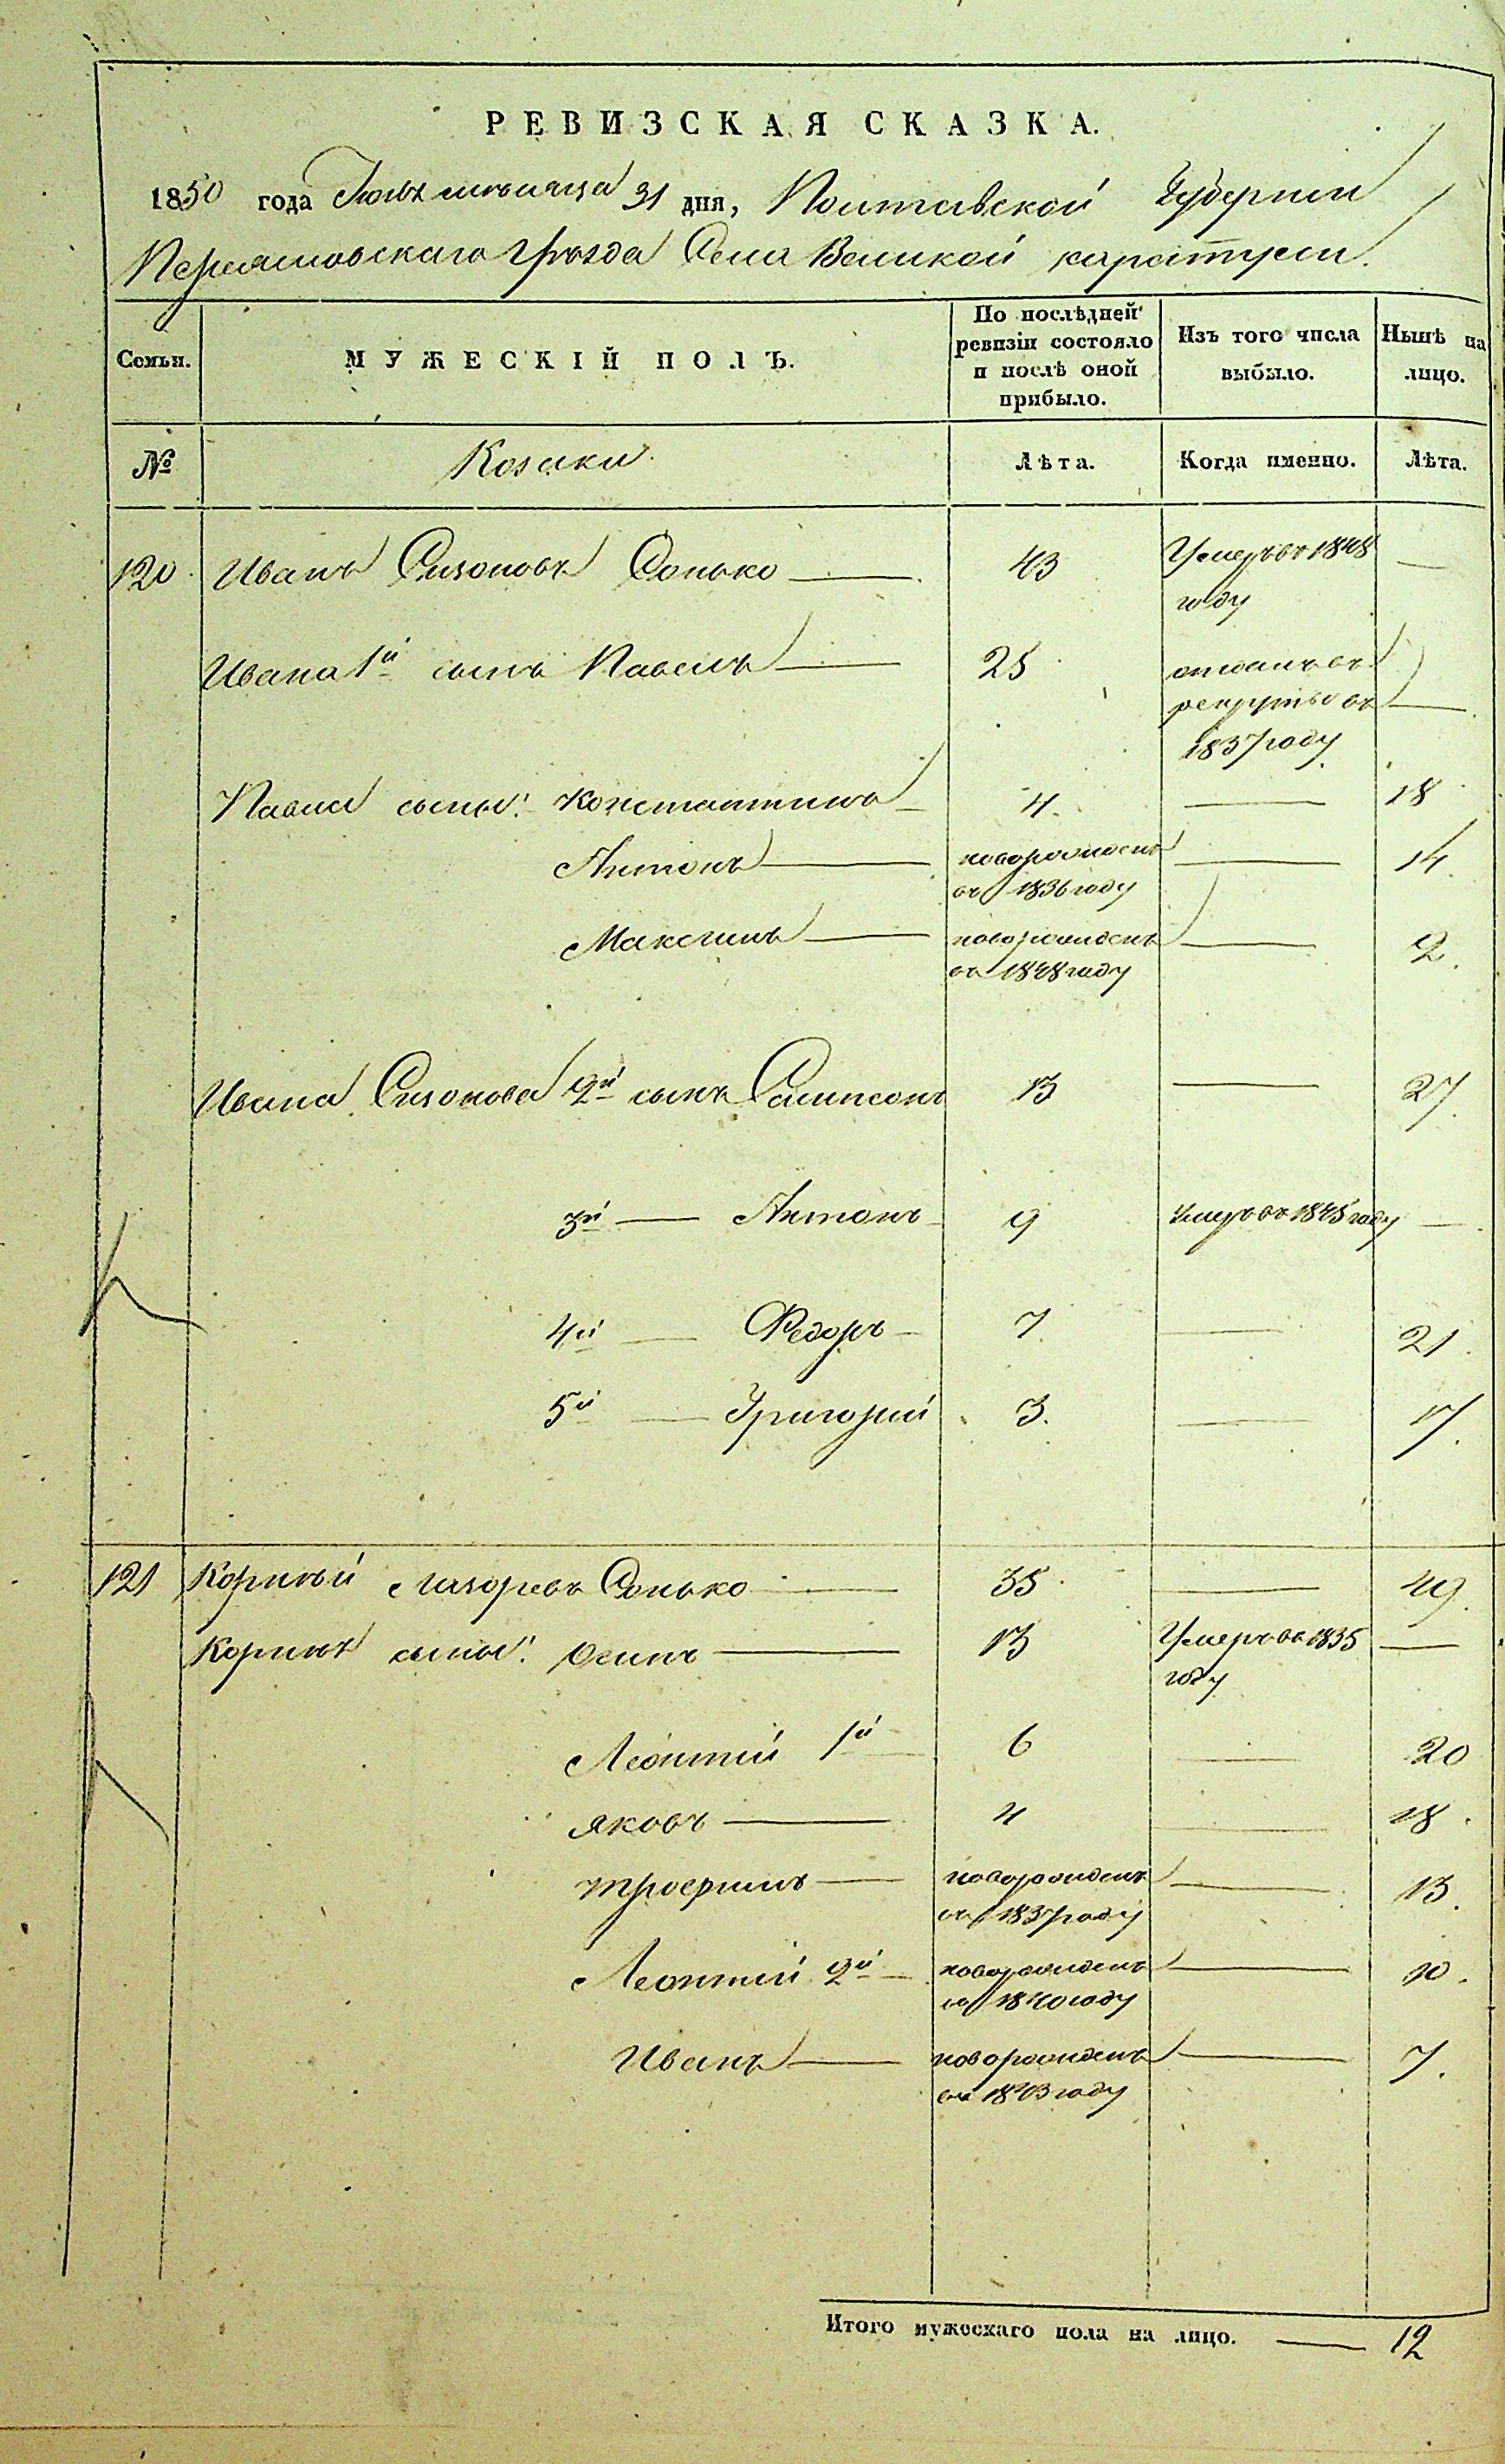 РЕВИЗСКАЯ СКАЗКА.
1850 года Июль мѣсяца 31 дня, Полтавской Губерніи
Переяславскаго Уѣзда Села Великой каратули.
Семьи. МУЖЕСКІЙ ПОЛЪ. По послѣдней ревизіи состояло и послѣ оной прибыло. Изъ того числа выбыло. Нынѣ на лицо.
№ Козаки Лѣта. Когда именно. Лѣта.
120 Иванъ Сизоновъ Сонько — 43 Умеръ въ 1848 году —
Ивана 1й сынъ Павелъ — 25 отданъ въ рекруты въ 1837 году —
Павла сыны: Константинъ 4. — 18
Антонъ — новорожденъ въ 1836 году — 14
Максимъ — новорожденъ въ 1848 году — 2.
Ивана Сизонова 2й сынъ Сампсонъ 13 — 27.
3й — Антонъ 9 умеръ въ 1845 году —
4й — Федоръ 7 — 21.
5й — Григорій 3. — 17.
121 Корнѣй Лазоревъ Сонько — 35 — 49.
Корнѣя сыны: Осипъ — 13 Умеръ въ 1835 году —
Леонтій 1й 6 — 20
Яковъ — 4 — 18.
Трофимъ — новорожденъ въ 1837 году — 13.
Леонтій 2й новорожденъ въ 1840 году — 10.
Иванъ — новорожденъ въ 1843 году — 7.
Итого мужескаго пола на лицо. — 12